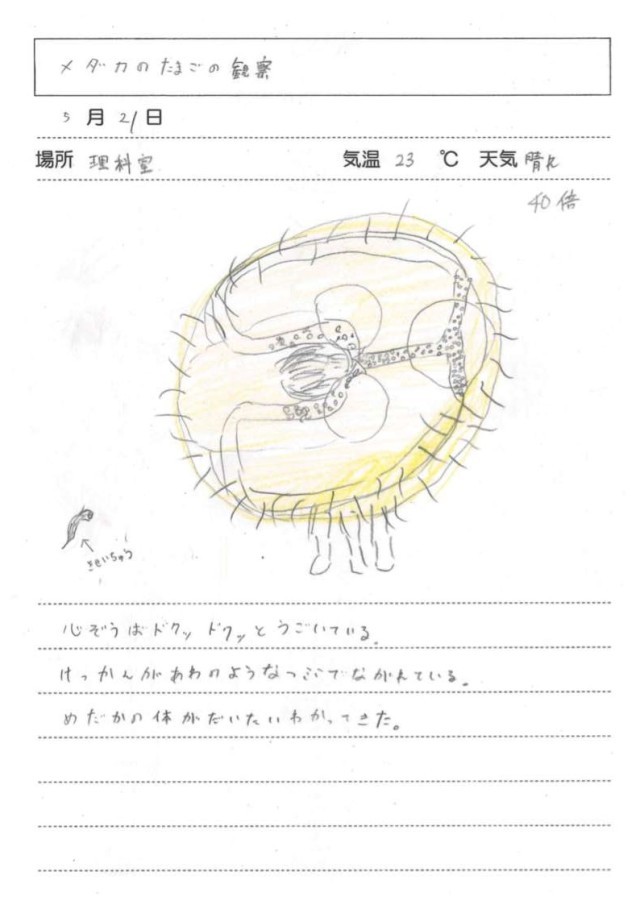 メダカのたまごの観察
5月21日
場所 理科室 気温 23 ℃ 天気 晴れ
40倍
きせいちゅう
心ぞうはドクッ ドクッとうごいている。
けっかんがあわのようなつぶでながれている。
めだかの体がだいたいわかってきた。